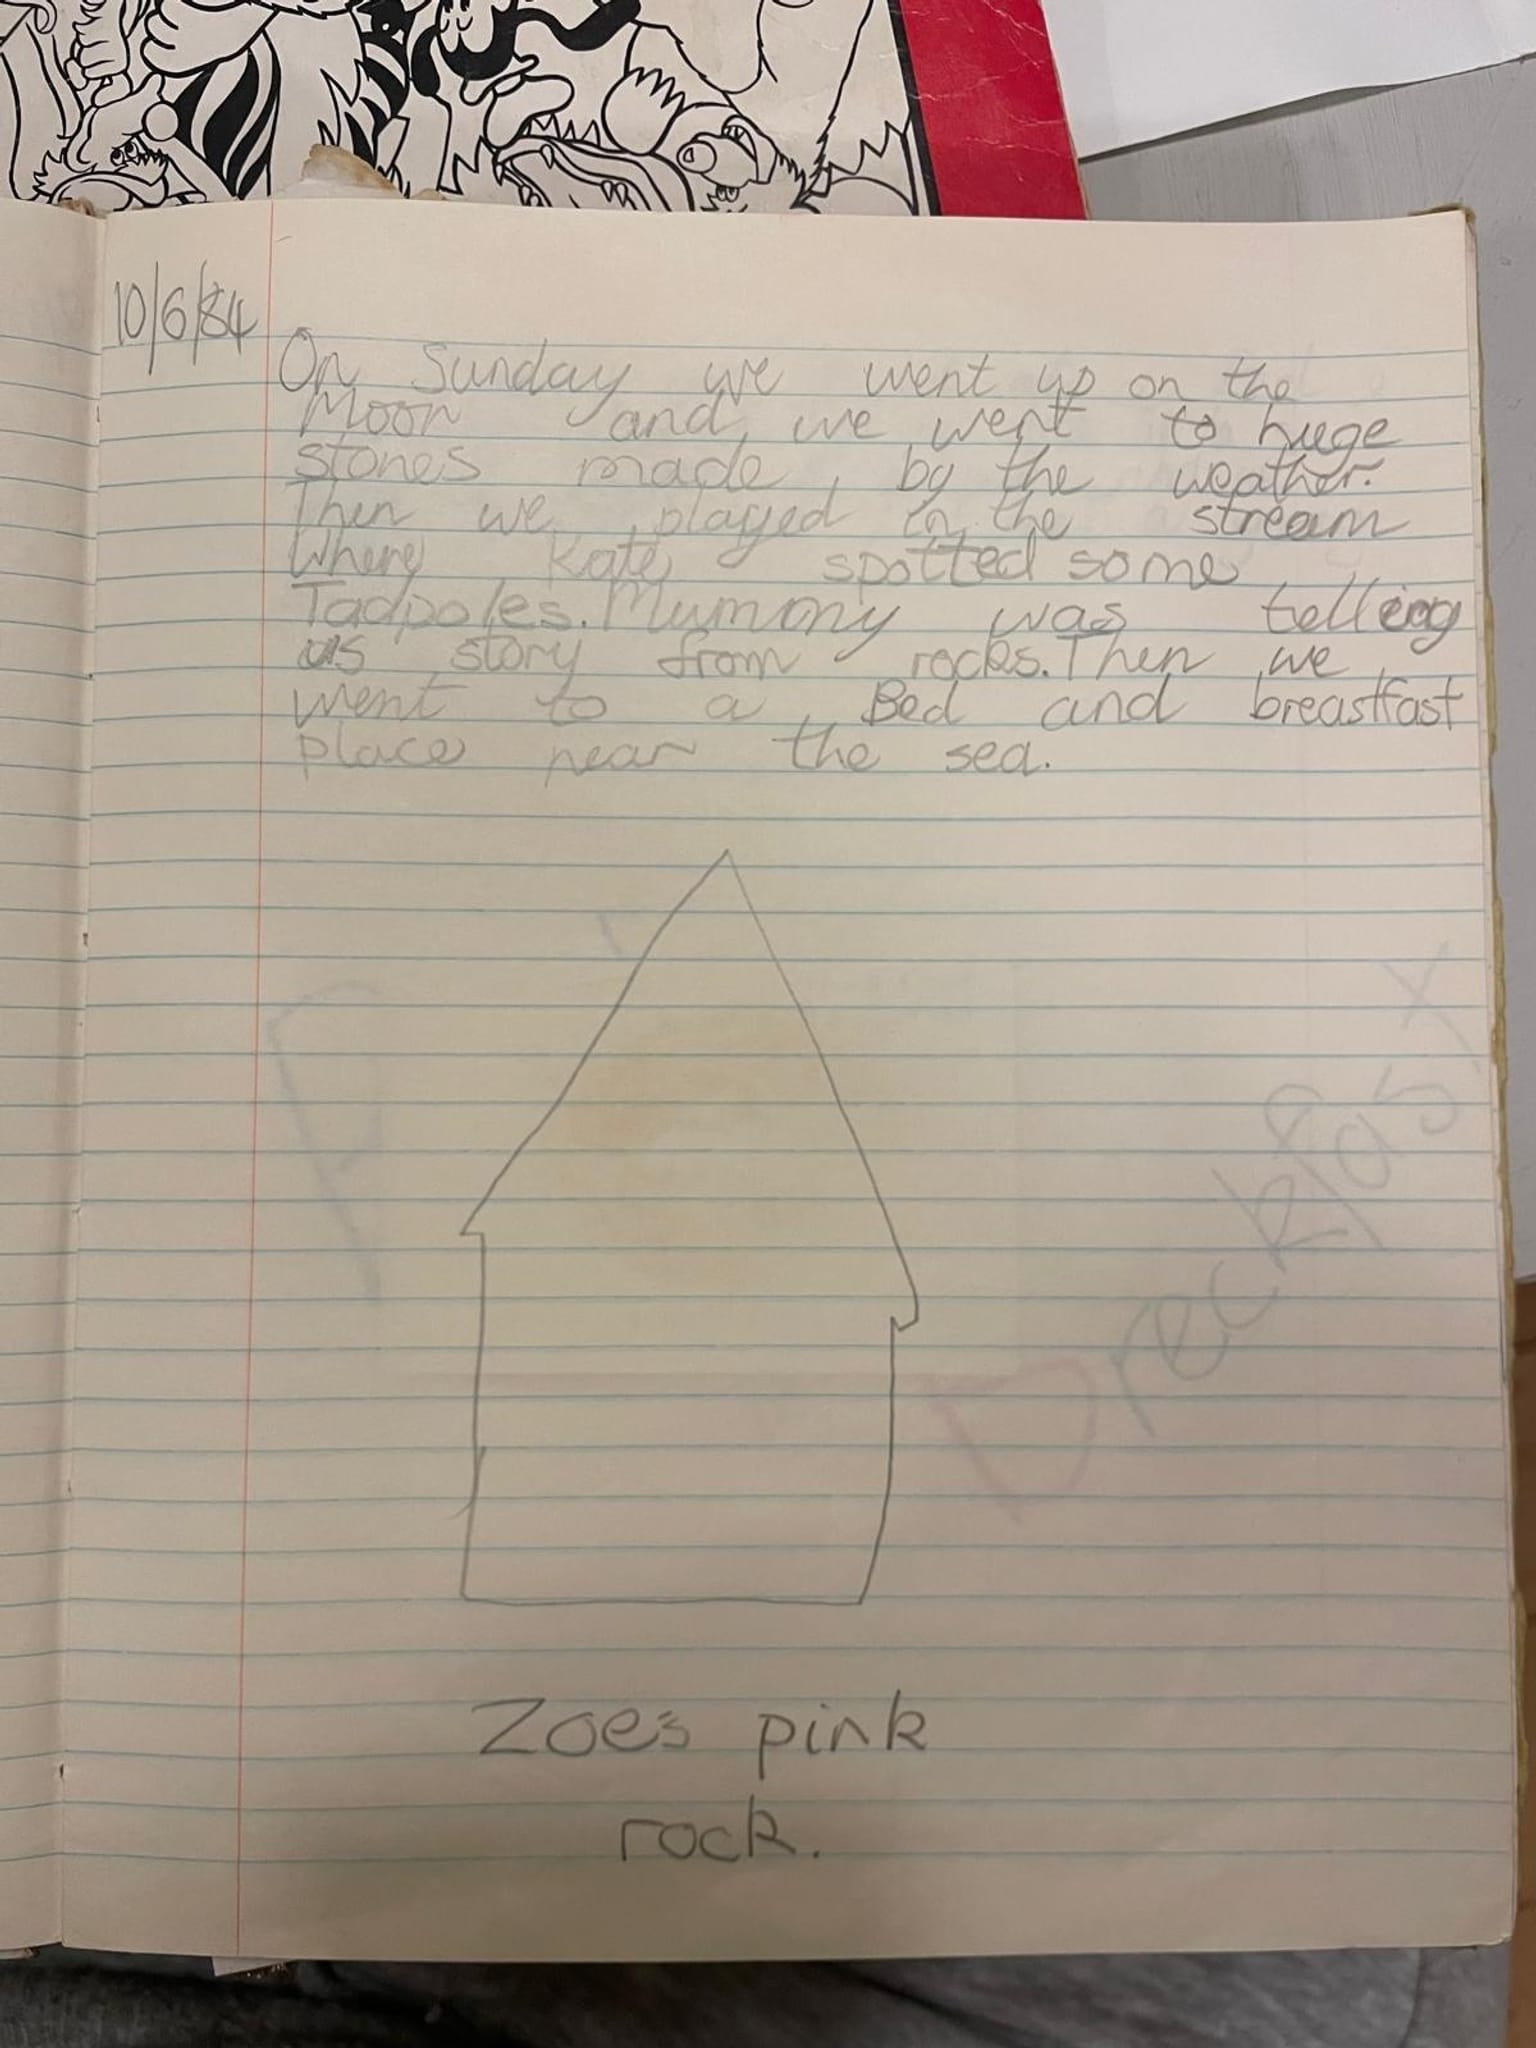 10/6/84
On Sunday we went up on the
Moor and, we went to huge
stones made, by the weather.
Then we played in the stream
Where Kate spotted some
Tadpoles. Mummy was telling
us story from rocks. Then we
went to a Bed and breastfast
place near the sea.
breckfast
Zoe's pink
rock.